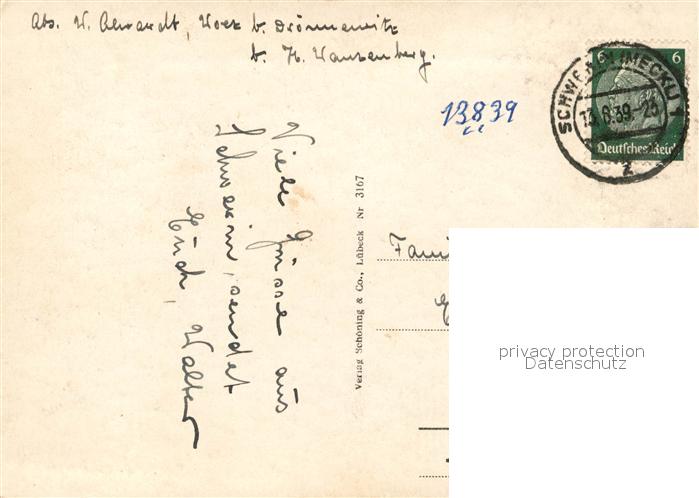 Abs. W. Ahrandt, Woez b. Drönnewitz
b. H. Wanzenberg.
13839
SCHWERIN (MECKL) 1
13.8.39.-23
z
6 6
Deutsches Reich
Viele Grüsse aus
Schwerin, sendet
Euch, Walter
Verlag Schöning & Co., Lübeck Nr 3167
Fami
privacy protection
Datenschutz